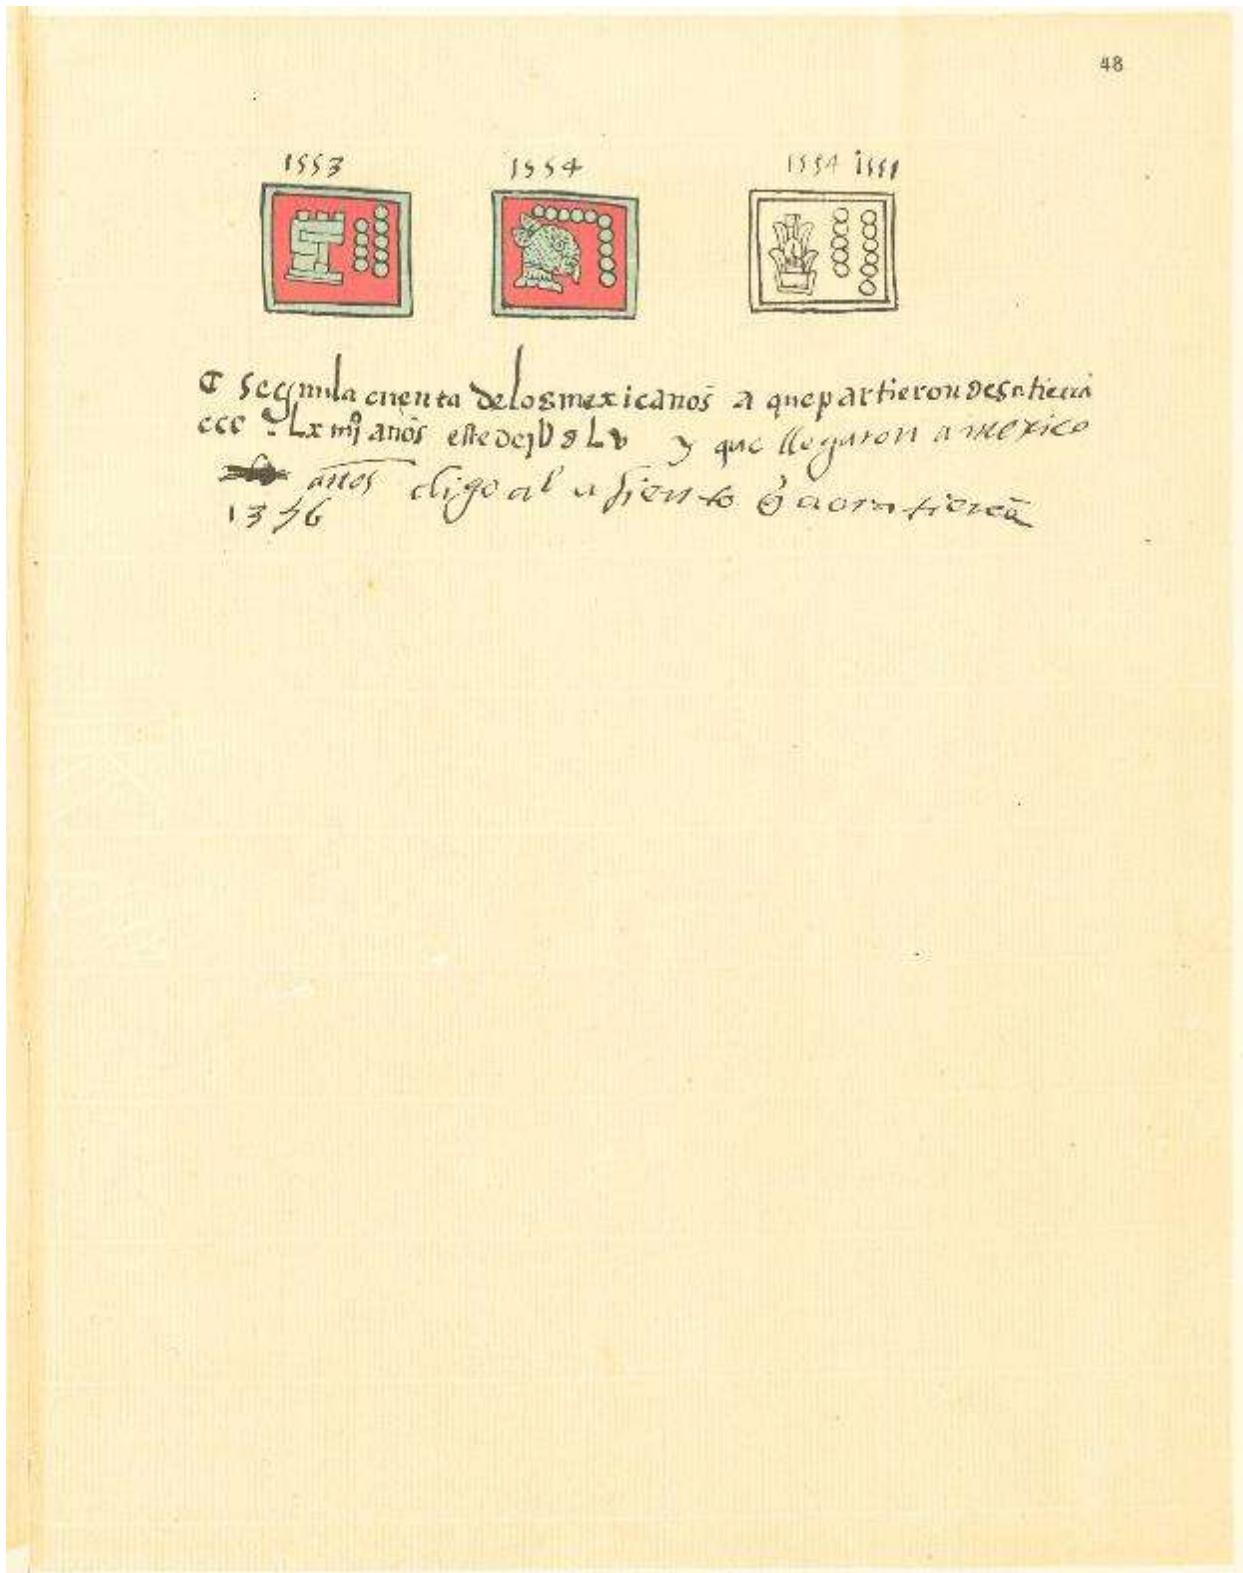 48
1553 1554 1554 i555
segun la cuenta de los mexicanos a que partieron de su tierra
ccc Lx años este de y que llegaron a mexico
años digo al asiento q aora tienē
1356